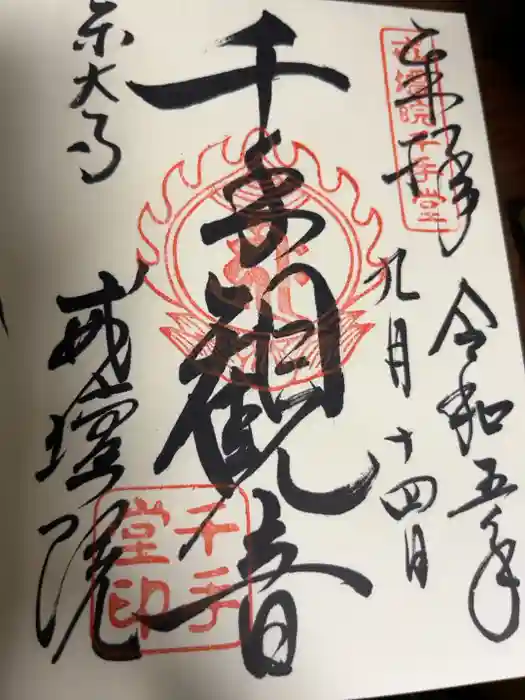 奉拝
戒壇院千手堂
令和五年
九月十四日
千手観音
東大寺
戒壇院
千手
堂印